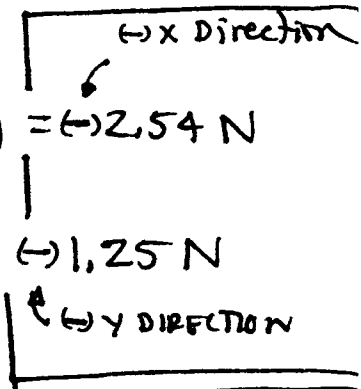 (-) X Direction
) = (-) 2.54 N
(-) 1.25 N
(-) Y DIRECTION